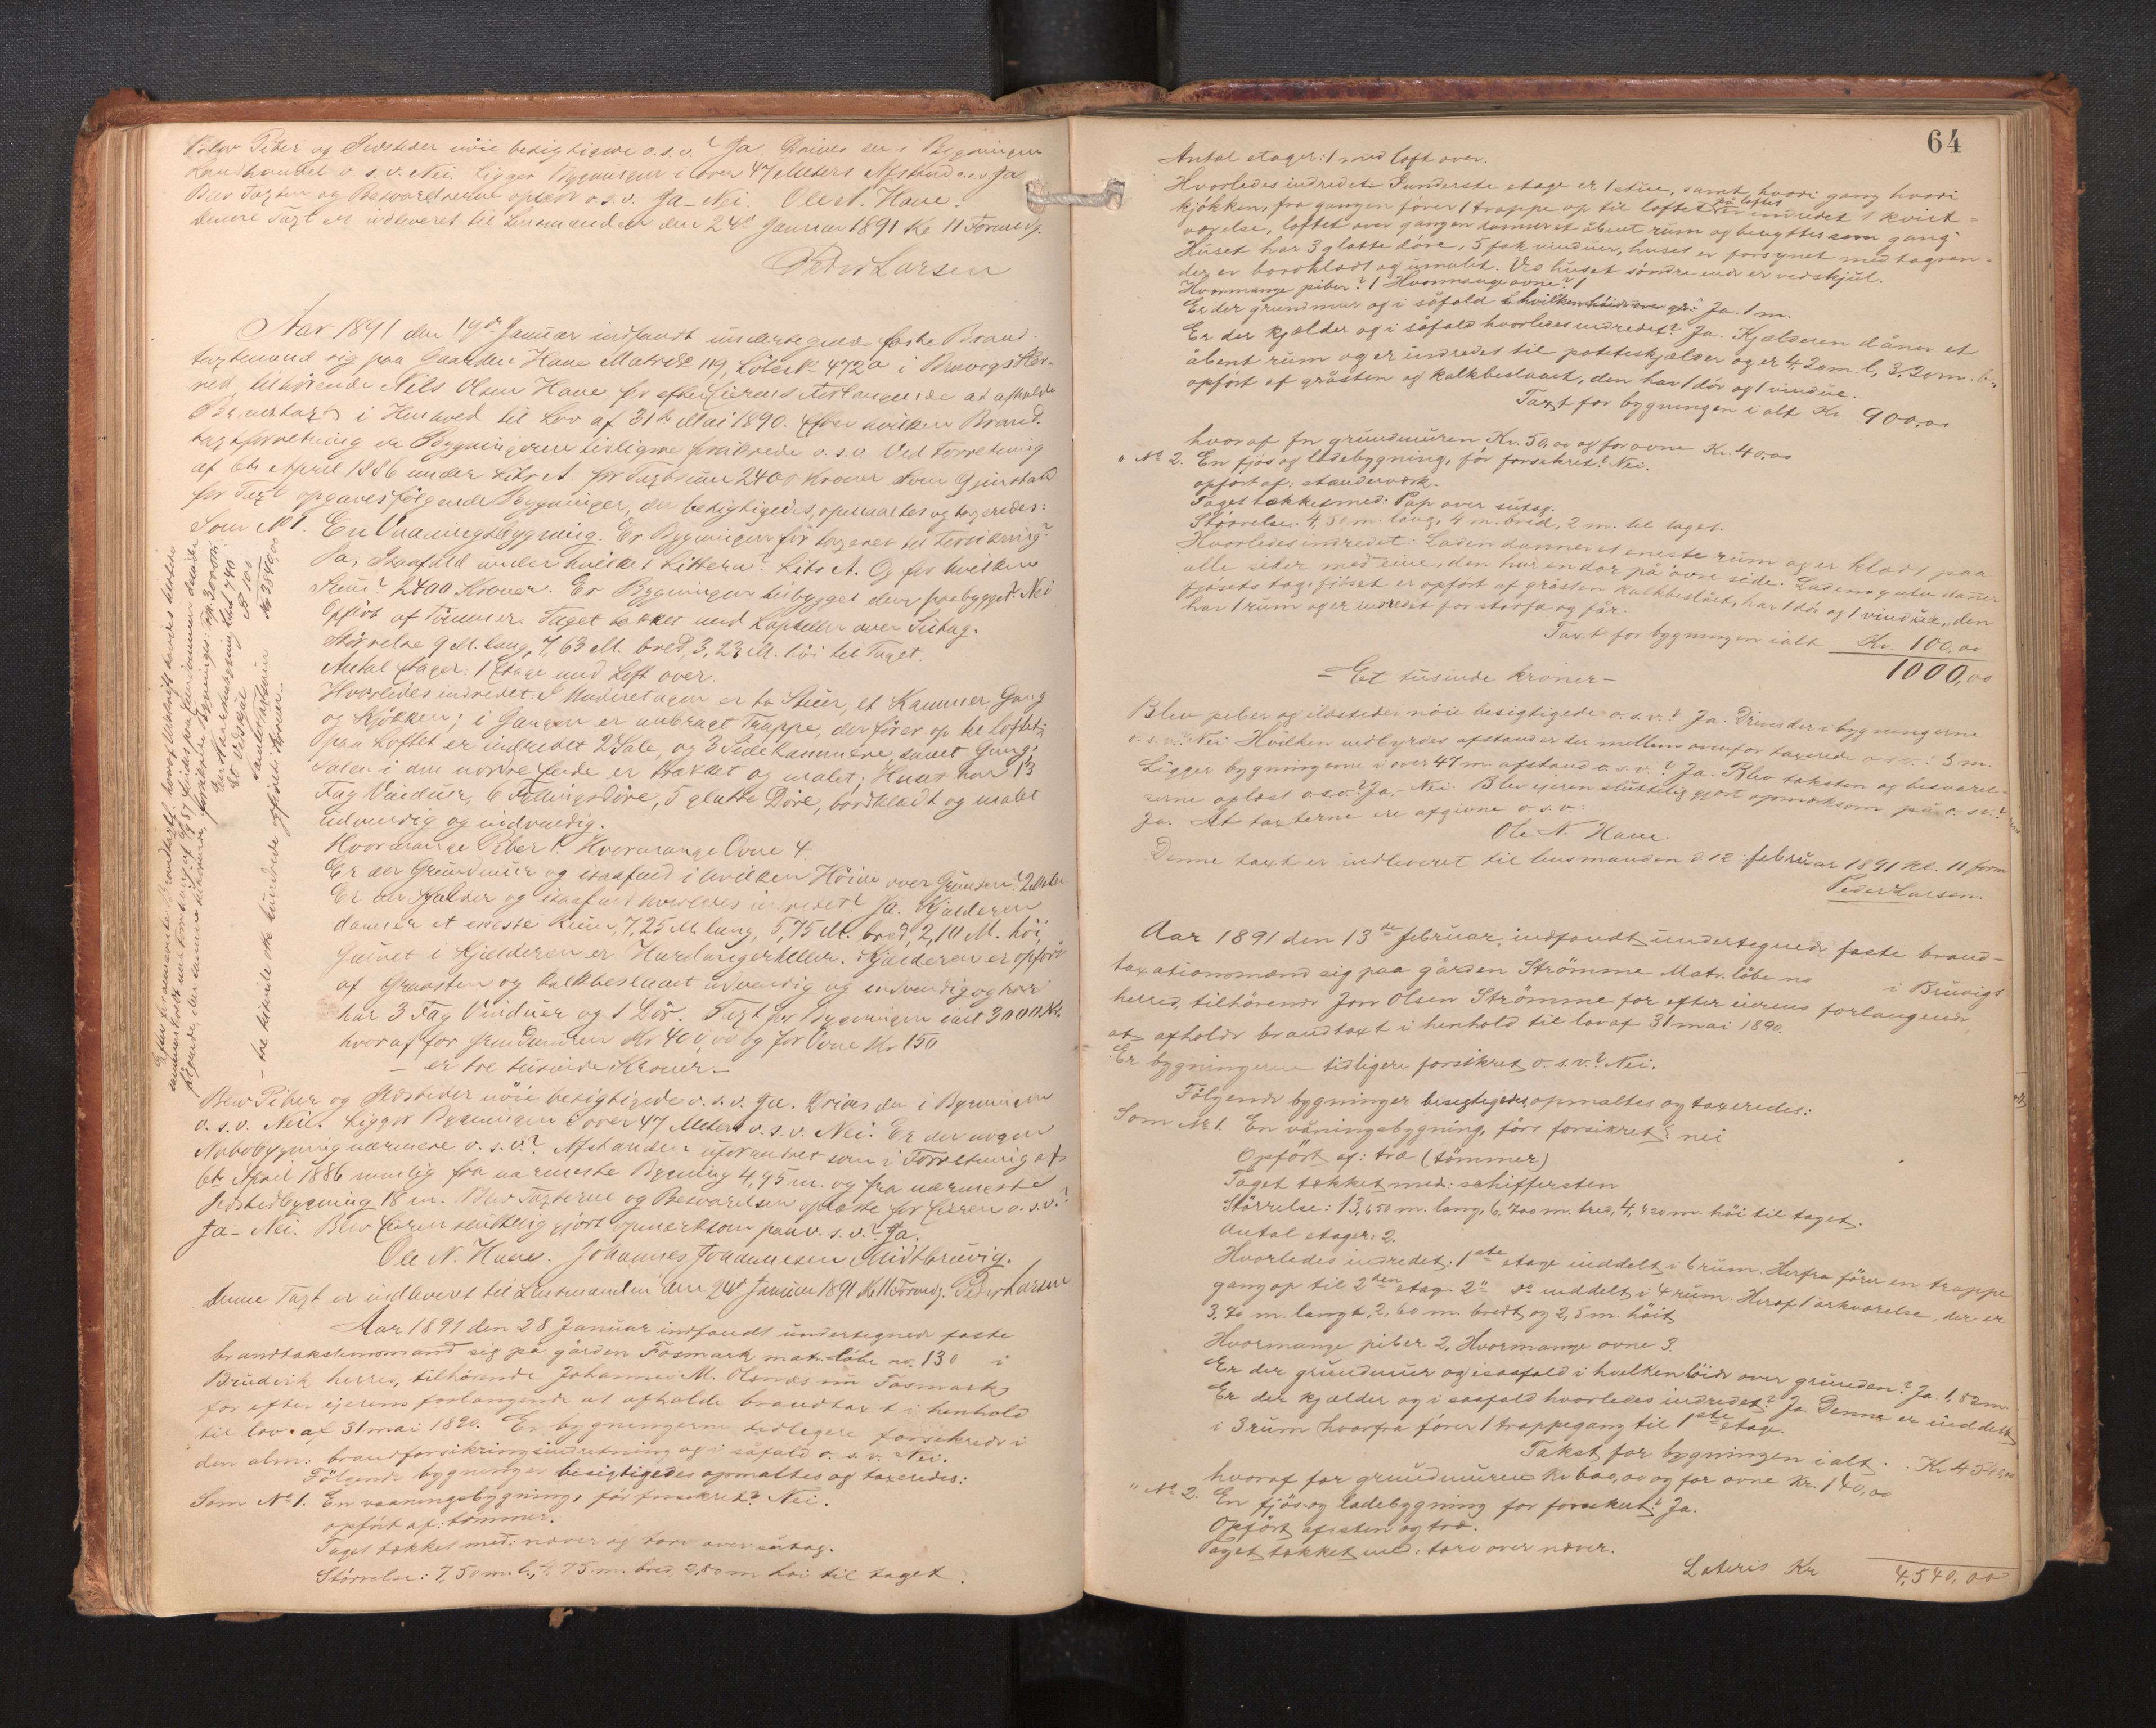 Blev Piber og Ildsteder nöie besigtigede o.s.v.? Ja. Drives der i Bygningen
Landhandel o. s. v. Nei. Ligger Bygningen i over 47 Meters Afstand o.s.v. Ja
Blev Taxten og Besvarelserne oplæst o.s.v. Ja – Nei. Ole N. Hane.
Denne Taxt er indleveret til Lensmanden den 24de Januar 1891 Kl. 11 Formdg.
Peder Larsen
Aar 1891 den 19de Januar indfandt undertegnede faste Brand-
taxtmand sig paa Gaarden Hane Matrikel 119, Löbe No 472a i Bruvigs Her-
red, tilhörende Nils Olsen Hane for efter Eierens Forlangende at afholde
Brandtaxt i Henhold til Lov af 31te Mai 1890. Efter hvilken Brand-
taxtforretning er Bygningerne tidligere forsikrede o.s.v. Ved Forretning
af 6te April 1886 under Litr A. for Taxtsum 2400 Kroner. Som Gjenstand
for Taxt opgaves følgende Bygninger, der besigtigedes, opmaaltes og taxeredes:
Som No 1. En Vaaningsbygning. Er Bygningen för taxeret til Forsikring?
Ja, Isaafald under hvilket Littera? Litr A. Og for hvilken
Sum? 2400 Kroner. Er Bygningen tilbygget eller paabygget. Nei
Opfört af Tömmer. Taget tækket med Lapheller over Sutag.
Störrelse 9 M. lang, 7,63 M. bred, 3,23 M. höi til Taget.
Antal Etager: 1 Etage med Loft over.
Hvorledes indredet. I Underetagen er to Stuer, et Kammer, Gang
og Kjökken; i Gangen er anbragt Trappe, der förer op til Loftet;
paa Loftet er indredet 2 Sale, og 3 Sidekammere samt Gang;
Salen i den nordre Ende er trækket og malet; Huset har 13
Fag Vinduer, 6 Fyllingsdöre, 5 glatte Döre, bordklædt og malet
udvendig og indvendig.
Hvormange Piber 1. Hvormange Ovne 4.
Er der Grundmur og isaafald i hvilken Höide over Grunden? 2 Meter
Er der Kjælder og isaafald hvorledes indredet? Ja. Kjælderen
danner et eneste Rum, 7,25 M. lang, 5,75 M. bred, 2,10 M. höi,
Gulvet i Kjælderen er Hardangerheller. Kjælderen er opfört
af Graasten og kalkbeslaaet udvendig og indvendig og har
har 3 Fag Vinduer og 1 Dör. Taxt for Bygningen ialt 3000 Kr.
hvoraf for Grundmuren Kr 400,00 og for Ovne Kr 150
– er tre tusinde Kroner. –
Blev Piber og Ildsteder nöie besigtigede o.s.v. Ja. Drives der i Bygningen
o.s.v. Nei. Ligger Bygningen i over 47 Meter o.s.v. Nei. Er der nogen
Nabobygning nærmere o.s.v.? Afstanden uforandret som i Forretning af
6te April 1886 nemlig fra nærmeste Bygning 4,95 m. og fra nærmeste
Ildstedbygning 18 m. Blev Taxterne og Besvarelsen oplæste for Eieren o.s.v.?
Ja – Nei. Blev Eieren sluttelig gjort opmærksom paa o. s. v.? Ja.
Ole N. Hane. Johannes Johannesen Midtbruvig.
Denne Taxt er indleveret til Lensmanden den 24de Januar 1891 Kl. 11 Formdg. Peder Larsen
Aar 1891 den 28 Januar indfandt undertegnede faste
brandtakstenmand sig på gården Fosmark matr. löbe no. 130 i
Bruvik herred, tilhörende Johannes M. Olsnes nu Fosmark
for efter eierens forlangende at afholde brandtaxt i henhold
til lov af 31 mai 1890. Er bygningerne tidligere forsikrede i
den alm. brandforsikringsindretning og i såfald o. s. v. Nei.
Fölgende bygninger besigtigedes opmaltes og taxeredes:
Som No 1. En vaaningsbygning, för forsikret? Nei.
opfört af: tömmer.
Taget tækket med: næver og torv over sutag.
Störrelse: 7,50 m. l., 4,75 m. bred, 2,80 m höi til taget.
– tre tusinde otte hundrede og firti kroner
64
Antal etager: 1 med loft over.
Hvorledes indredet: I underste etage er 1 stue, samt gang hvori
kjökken, fra gangen förer 1 trappe op til loftet på loftet er indredet 1 kvist-
værelse, loftet over gangen danner et åbent rum og benyttes som gang
Huset har 3 glatte döre, 5 fak vinduer, huset er forsynet med tagren-
der er bordklædt og umalet. Ved husets söndre ende er vedskjul.
Hvormange piber? 1 Hvormange ovne? 1
Er der grundmur og i såfald i hvilken höide over gr.? Ja. 1 m.
Er der kjælder og i såfald hvorledes indredet? Ja. Kjælderen daner et
åbent rum og er indredet til potetskjælder og er 4,20 m. l, 3,20 m. b.,
opfört af gråsten og kalkbeslaaet, den har 1 dör og 1 vindue.
Taxt for bygningen i alt Kr 900,00
hvoraf for grundmuren Kr. 50,00 og for ovne Kr. 40,00
" No 2. En fjös og ladebygning, för forsekret? Nei.
opfört af: standerværk.
Taget tækket med: Pap over sutag.
Störrelse: 4,50 m. lang, 4 m. bred, 2 m. til taget.
Hvorledes indredet: Laden danner et eneste rum og er klædt paa
alle sider med eine, den har en dör på övre side. Ladens gulv danner
fjösets tag, fjöset er opfört af gråsten kalkbeslået, har 1 dör og 1 vindue, den
har 1 rum og er indredet for storfæ og får.
Taxt for bygningen ialt Kr. 100,00
1000,00
– Et tusinde kroner –
Blev piber og ildsteder nöie besigtigede o. s. v.? Ja. Drives der i bygningerne
o. s. v.? Nei Hvilken indbyrdes afstand er der mellem ovenfor taxerede o. s. v.: 5 m.
Ligger bygningerne i over 47 m. afstand o. s. v.? Ja. Blev taksten og besvarel-
serne oplæst o.s.v.? Ja, – Nei. Blev eieren sluttelig gjort opmærksom på o. s. v.?
Ja. At taxterne ere afgivne o. s. v.
Ole N. Hane.
Denne taxt er indleveret til lensmanden d. 12 februar 1891 kl. 11 form
Peder Larsen.
Aar 1891 den 13de februar, indfandt undertegnede faste brand-
taxationsmand sig paa gården Strömme Matr. löbe no i Bruvigs
herred, tilhörende Jon Olsen Strömme for efter eierens forlangende
at afholde brandtaxt i henhold til lov af 31 mai 1890.
Er bygningerne tidligere forsikret o. s. v.? Nei.
Fölgende bygninger besigtigedes, opmaltes og taxeredes:
Som No 1. En våningsbygning, för forsikret? nei
Opfört af: træ (tömmer)
Taget tækket med: schiffersten
Störrelse: 13,650 m. lang, 6,700 m. bred, 4,420 m. höi til taget.
Antal etager: 2.
Hvorledes indredet: 1ste etage inddelt i 6 rum. Herfra förer en trappe
gang op til 2den etag. 2" do inddelt i 4 rum. Heraf 1 arkværelse, der er
3,70 m. langt, 2,60 m. bredt og 2,5 m. höit
Hvormange piber 2, Hvormange ovne 3.
Er der grundmur og isaafald i hvilken höide over grunden? Ja. 1,80 m.
Er der kjælder og i saafald hvorledes indredet? Ja. Denne er inddelt
i 3 rum hvorfra förer 1 trappegang til 1ste etage.
Takst for bygningen i alt . . Kr 4540,00
hvoraf for grundmuren Kr 600,00 og for ovne Kr. 140,00
" No 2. En fjös og ladebygning for forsekret? Ja.
Opfört af: sten og træ.
Taget tækket med: torv over næver.
Lateris Kr 4,540,00